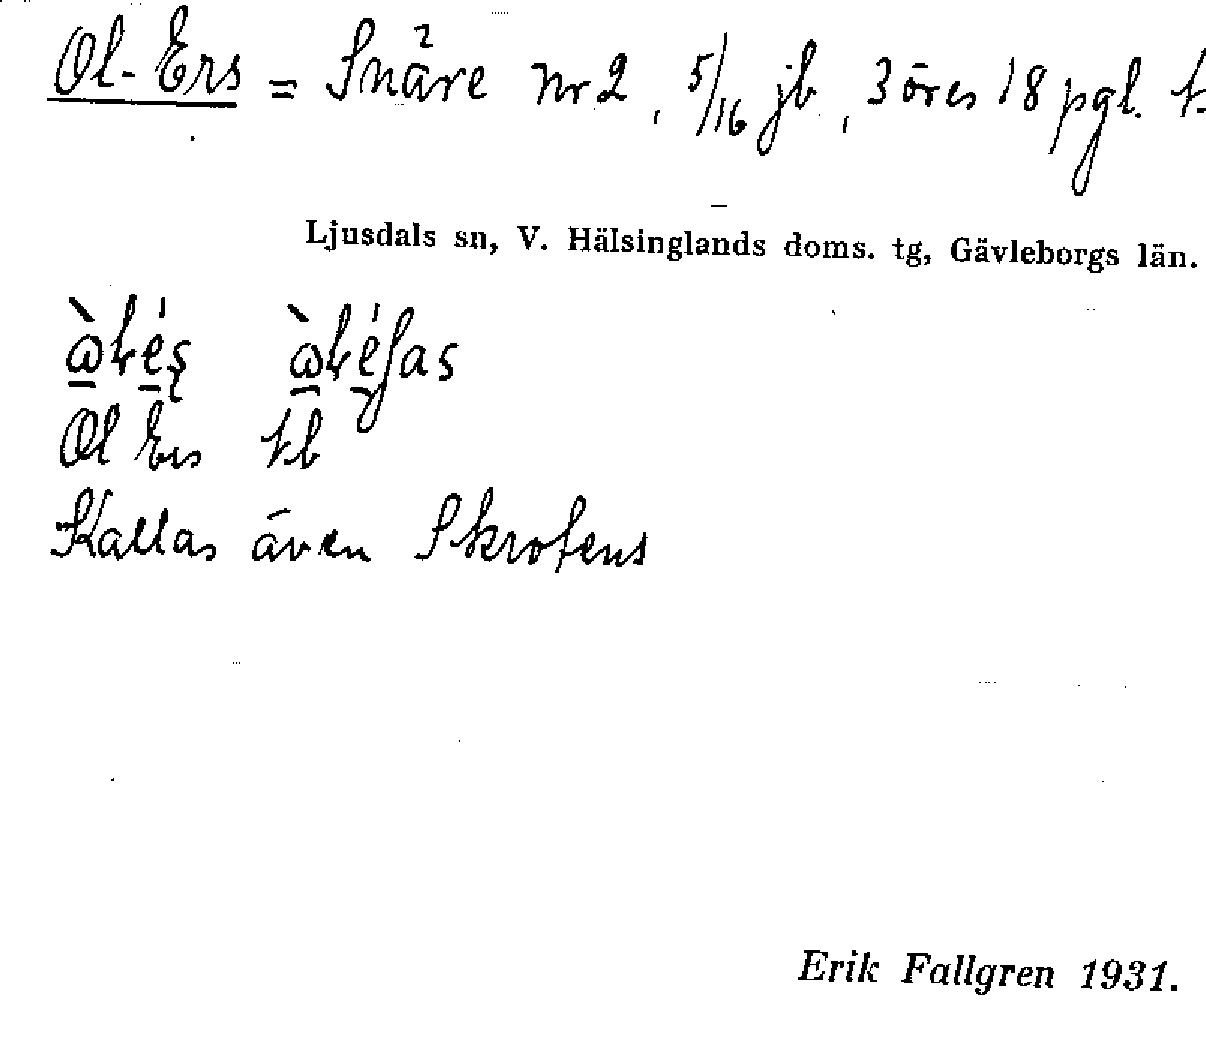 Ol-Ers = Snäre nr 2, 5/16 jb, 3 öres 18 pgl. t.
Ljusdals sn, V. Hälsinglands doms. tg, Gävleborgs län.
Ol Ers tb
Kallas även Skrofens
Erik Fallgren 1931.